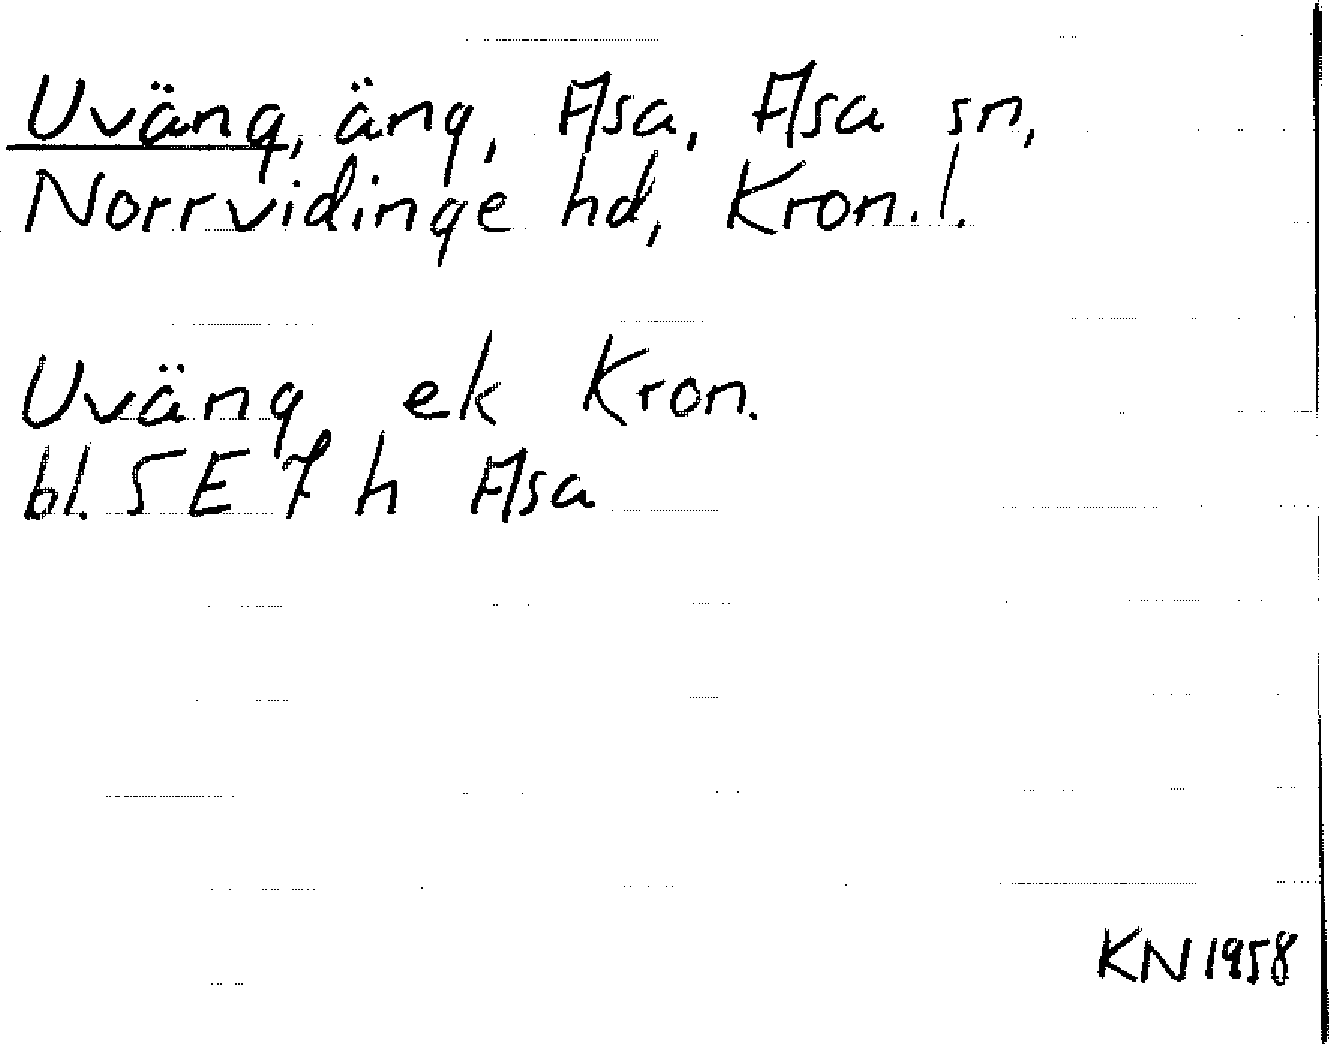 Uväng, äng, Asa, Asa sn,
Norrvidinge hd, Kron. l.
Uväng ek Kron.
bl. 5 E 7 h Asa
KN 1958